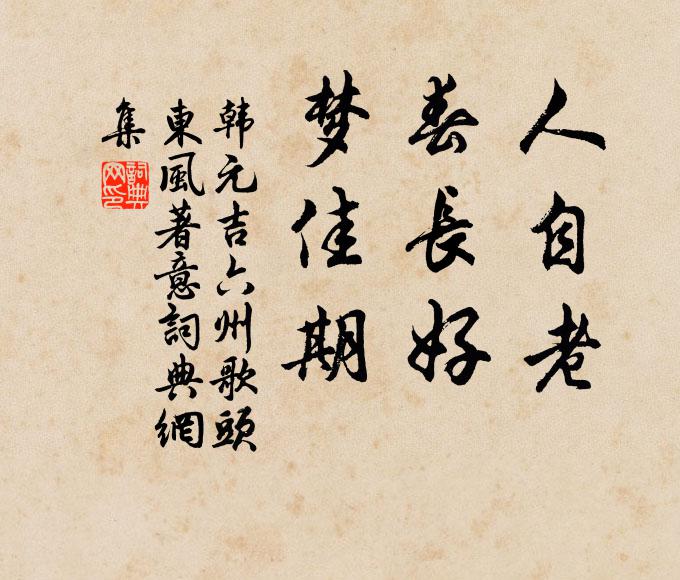 人自老
春長好
梦佳期
韩元吉六州歌頭
東風著意詞典網
集
詞典
网印